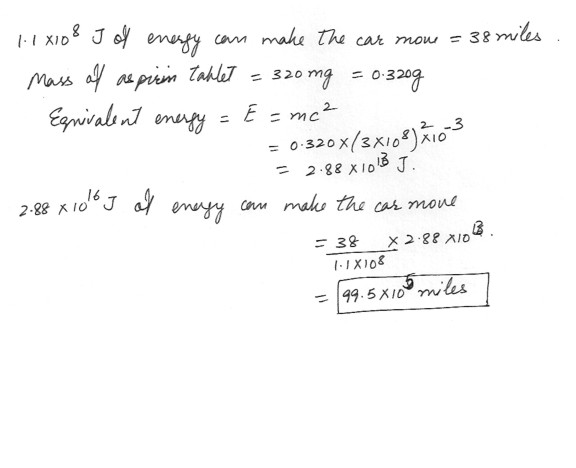 1.1 X10⁸ J of energy can make the car move = 38 miles.
Mass of aspirin tablet = 320 mg = 0.320g
Equivalent energy = E = mc²
= 0.320 X (3X10⁸)² X10⁻³
= 2.88 X10¹³ J.
2.88 X 10¹⁶ J of energy can make the car move
= 38 / 1.1X10⁸ X 2.88 X10¹³.
= 99.5 X10⁵ miles